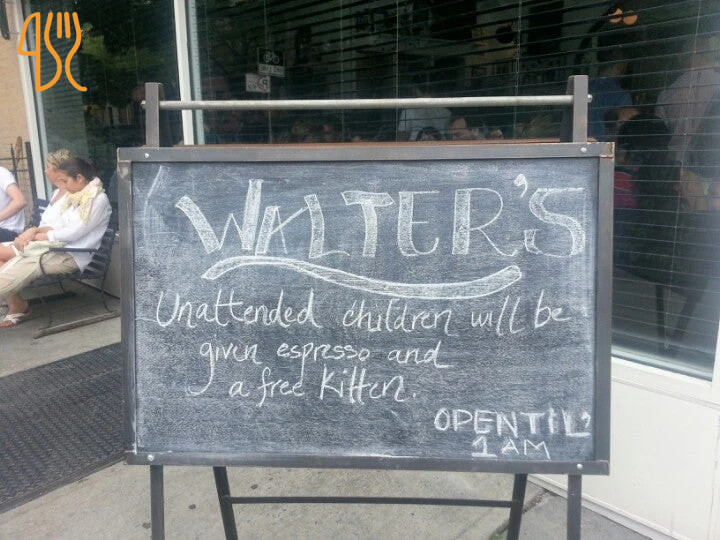 WALTER'S
Unattended children will be
given espresso and
a free kitten.
OPEN TIL'
1 AM